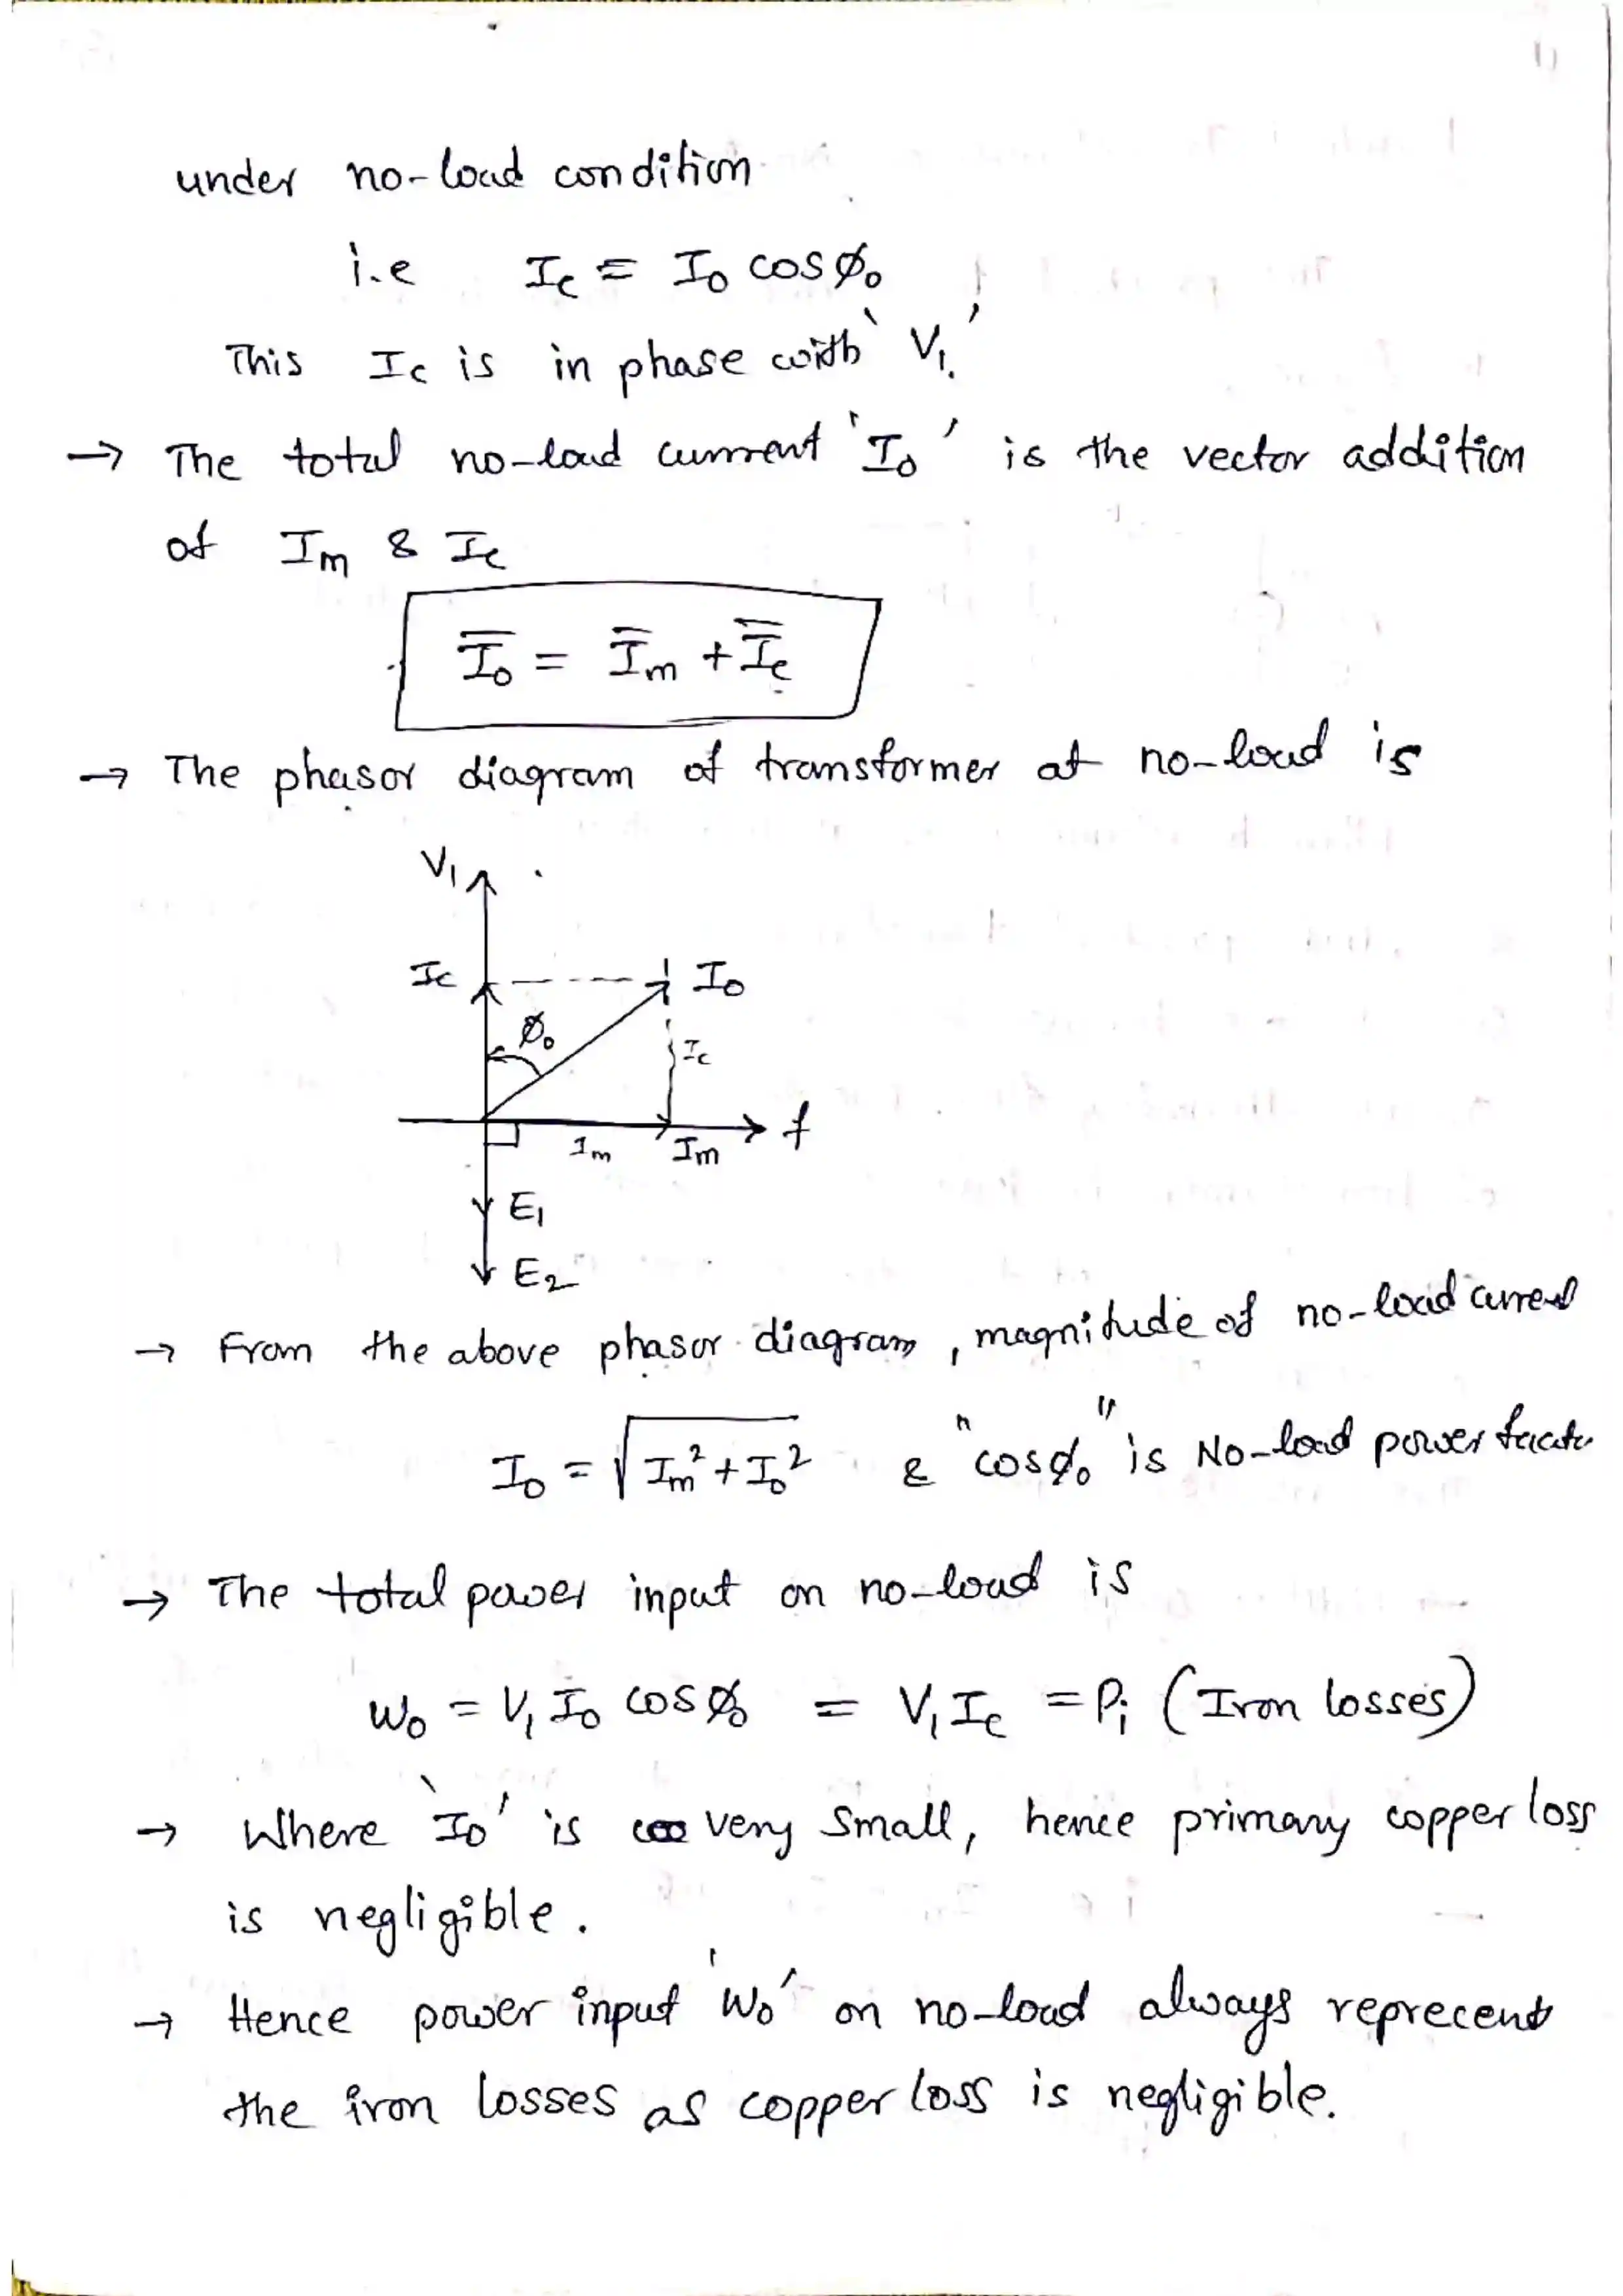 under no-load condition
i.e Ic = I₀ cosØ₀
This Ic is in phase with 'V₁.'
→ The total no-load current 'I₀' is the vector addition
of Im & Ic
I̅₀ = I̅m + I̅c
→ The phasor diagram of transformer at no-load is
V₁
Ic I₀
Ø₀
Ic
f
Im Im
E₁
E₂
→ From the above phasor diagram, magnitude of no-load current
I₀ = √Im² + I₀² & "cosØ₀" is No-load power factor
→ The total power input on no-load is
W₀ = V₁ I₀ cosØ₀ = V₁ Ic = Pi (Iron losses)
→ Where 'I₀' is very small, hence primary copper loss
is negligible.
→ Hence power input 'W₀' on no-load always reprecent
the iron losses as copper loss is negligible.